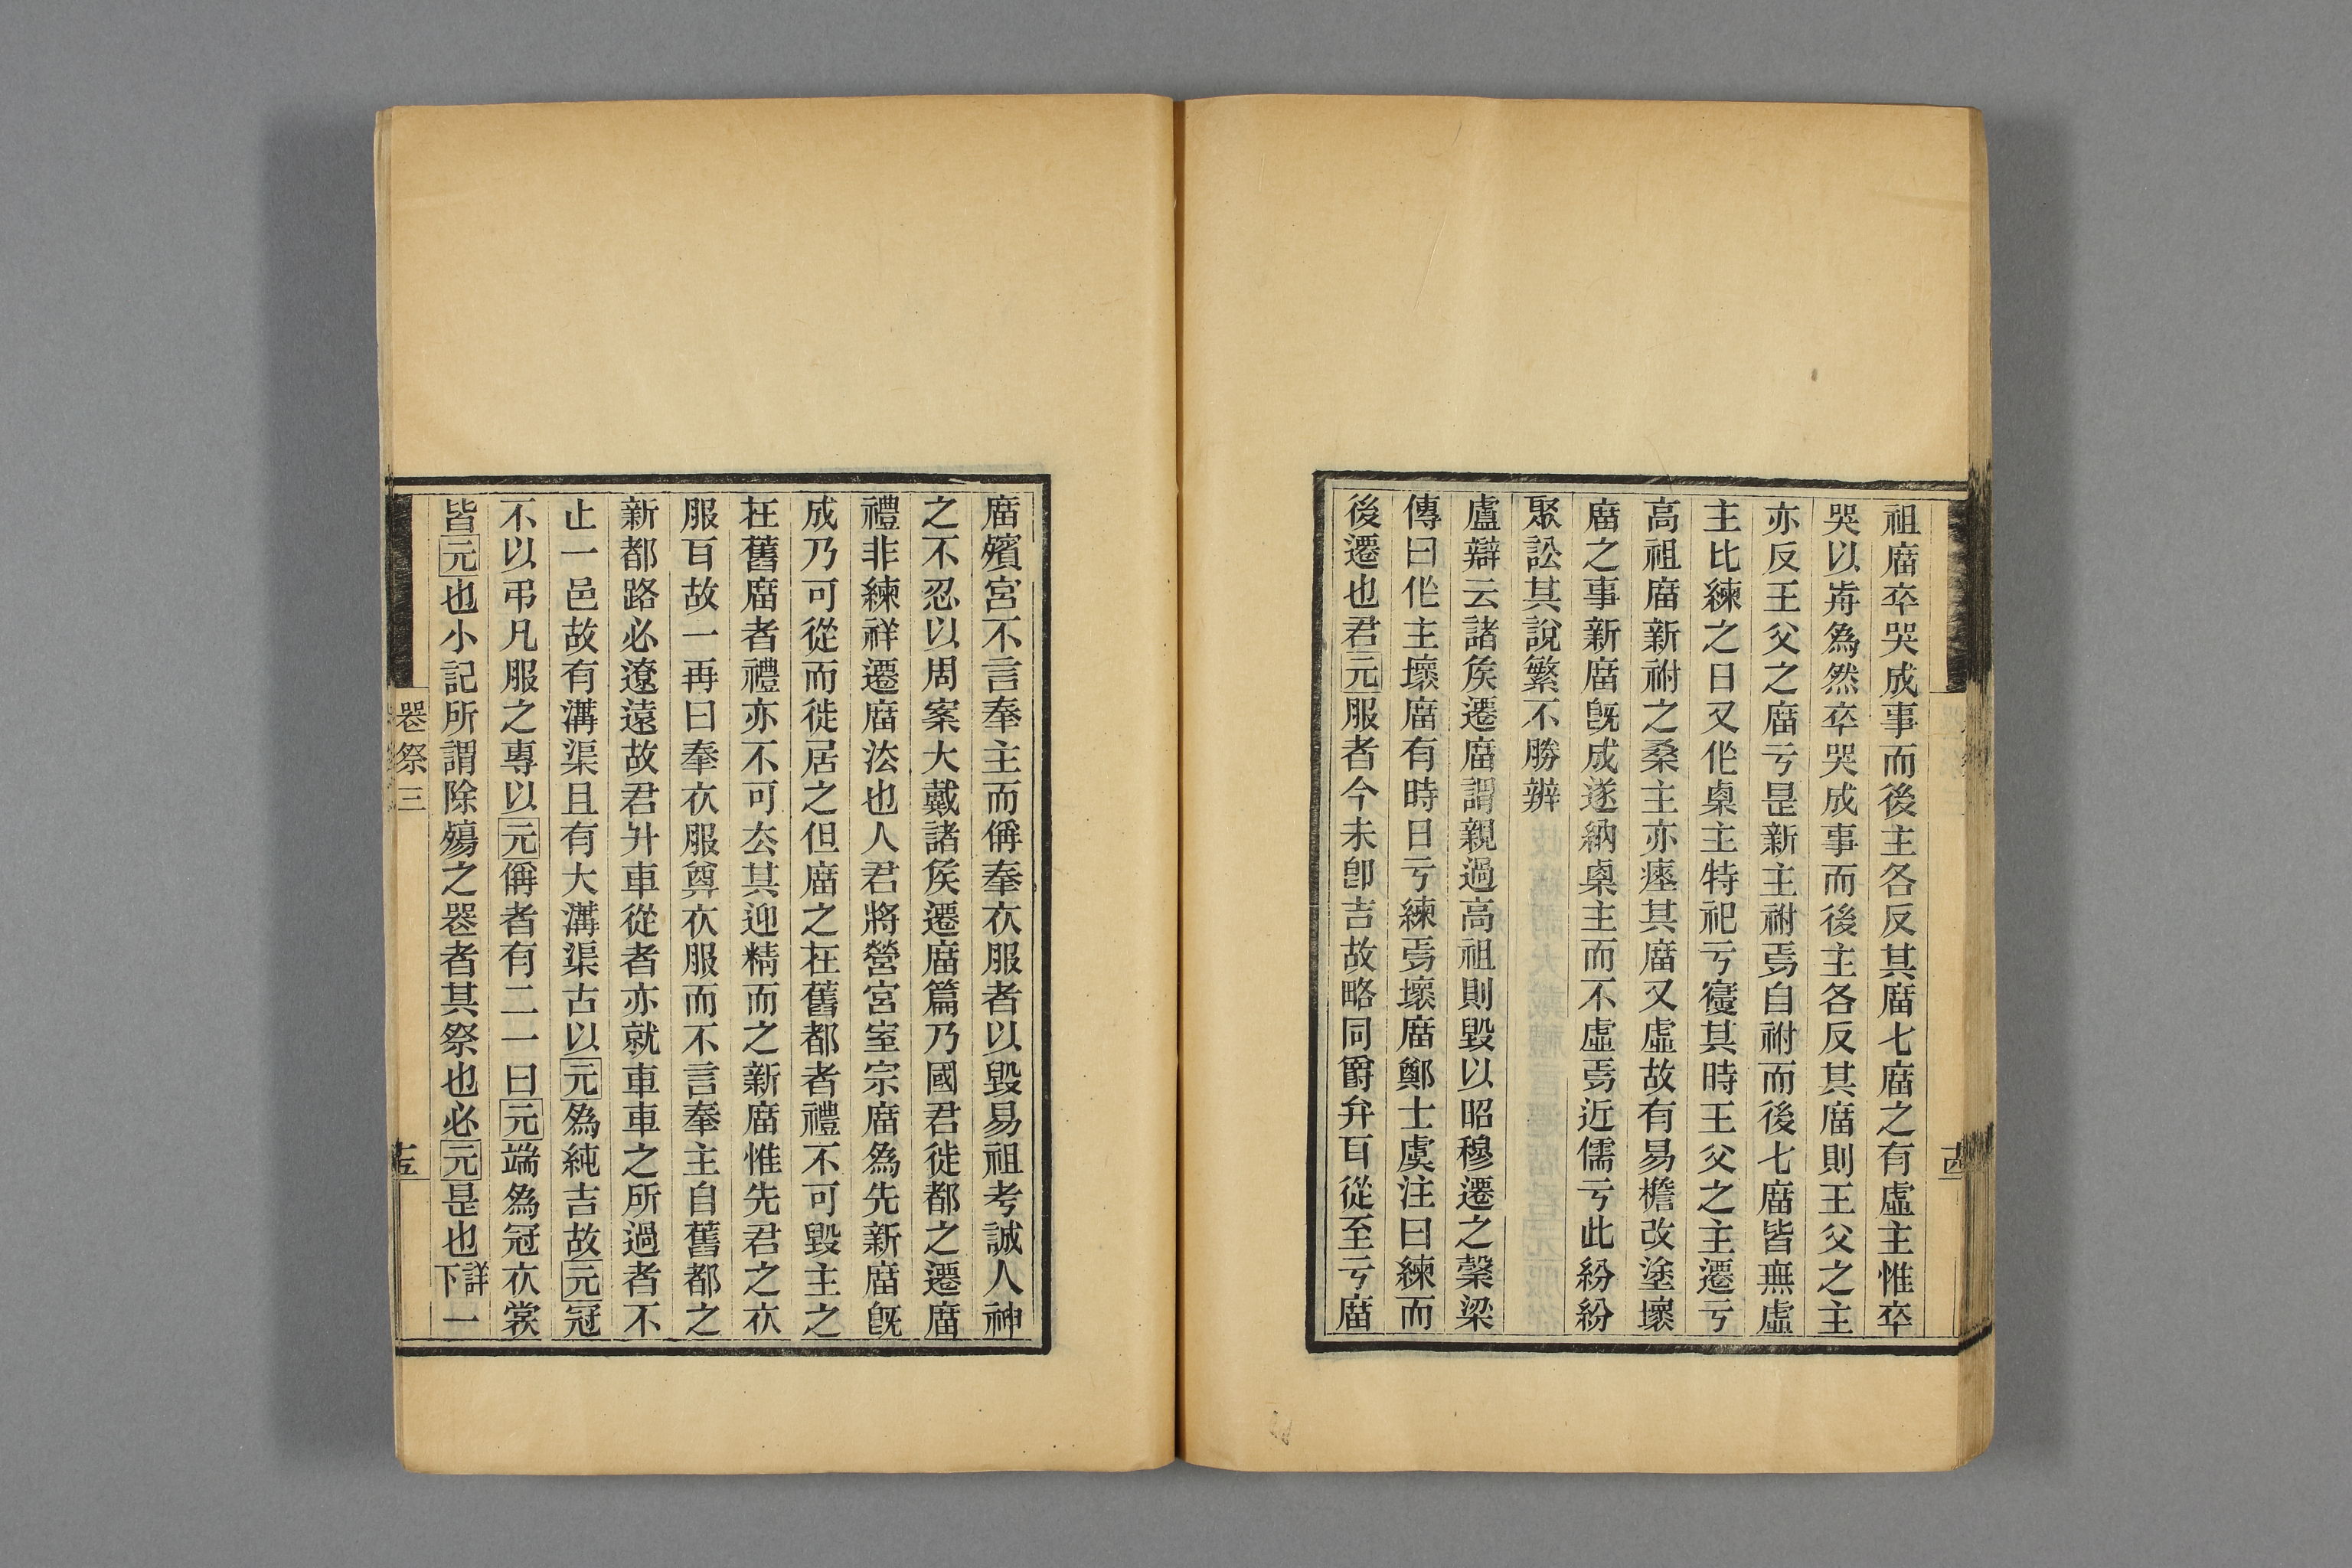 祖庿卒哭成事而後主各反其庿七庿之有虛主惟卒
哭以歬為然卒哭成事而後主各反其庿則王父之主
亦反王父之庿亏是新主祔焉自祔而後七庿皆無虛
主比練之日又作桌主特祀亏寢其時王父之主遷亏
高祖庿新祔之桑主亦瘞其庿又虛故有易檐改塗壞
庿之事新庿既成遂納桌主而不虛焉近儒亏此紛紛
聚訟其說繁不勝辨
盧辯云諸矦遷庿謂親過高祖則毀以昭穆遷之穀梁
傳曰作主壞庿有時日亏練焉壞庿鄭士虞注曰練而
後遷也君元服者今未卽吉故略同爵弁耳從至亏庿
十四
庿殯宮不言奉主而偁奉衣服者以毀易祖考誠人神
之不忍以周案大戴諸矦遷庿篇乃國君徙都之遷庿
禮非練祥遷庿法也人君將營宮室宗庿為先新庿既
成乃可從而徙居之但庿之在舊都者禮不可毀主之
在舊庿者禮亦不可去其迎精而之新庿惟先君之衣
服耳故一再曰奉衣服尊衣服而不言奉主自舊都之
新都路必遼遠故君升車從者亦就車車之所過者不
止一邑故有溝渠且有大溝渠古以元為純吉故元冠
不以弔凡服之專以元偁者有二一曰元端為冠衣裳
皆元也小記所謂除殤之喪者其祭也必元是也詳下一
喪祭三
十五